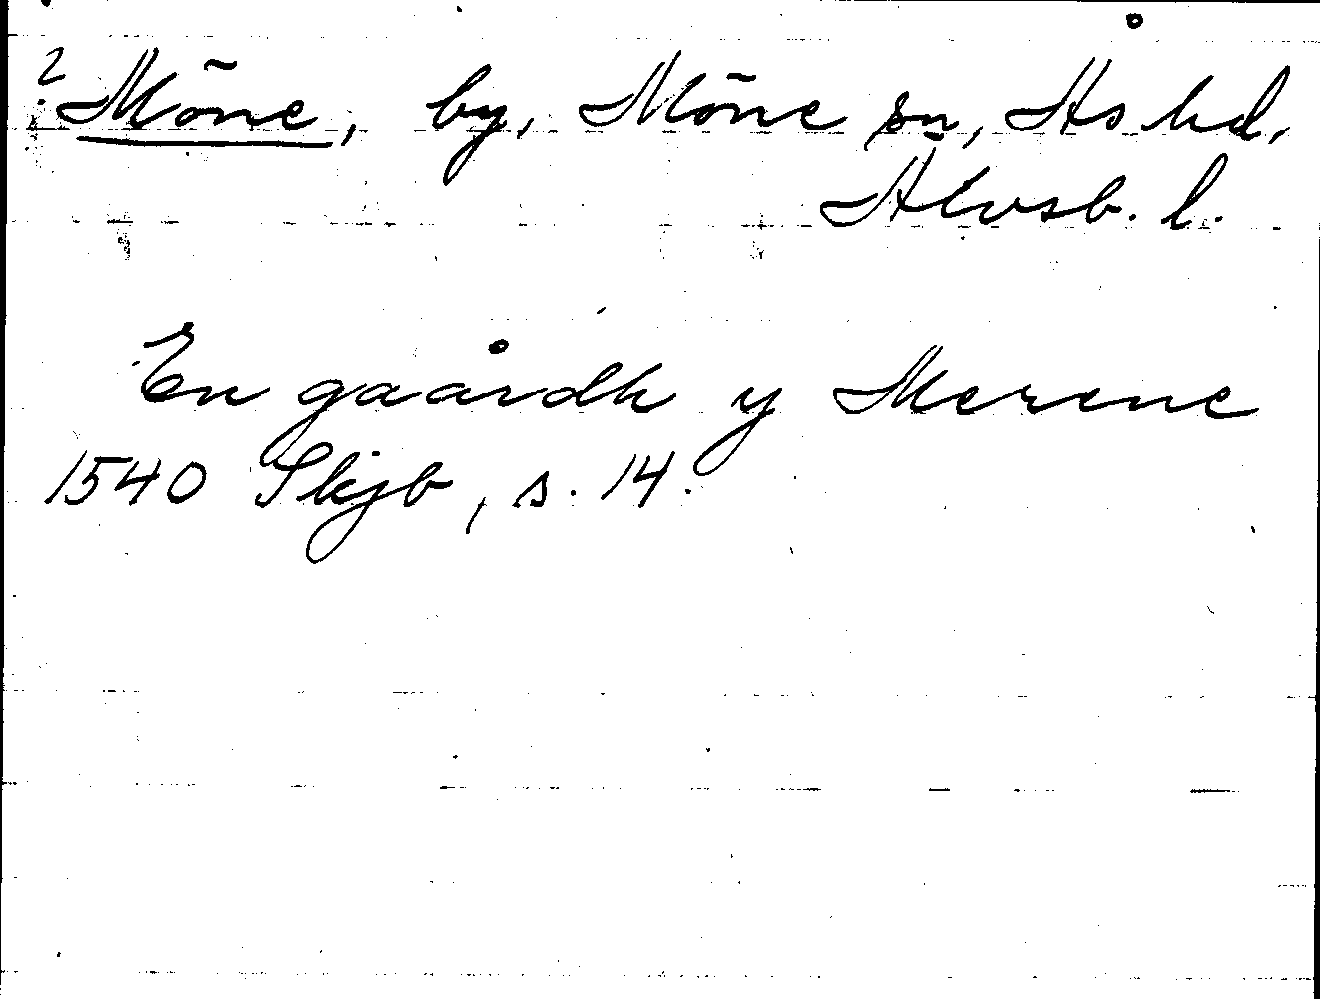 ? Möne, by, Möne sn, Ås hd,
Älvsb. l.
En gaårdh y Merene
1540 Skjb, s. 14.